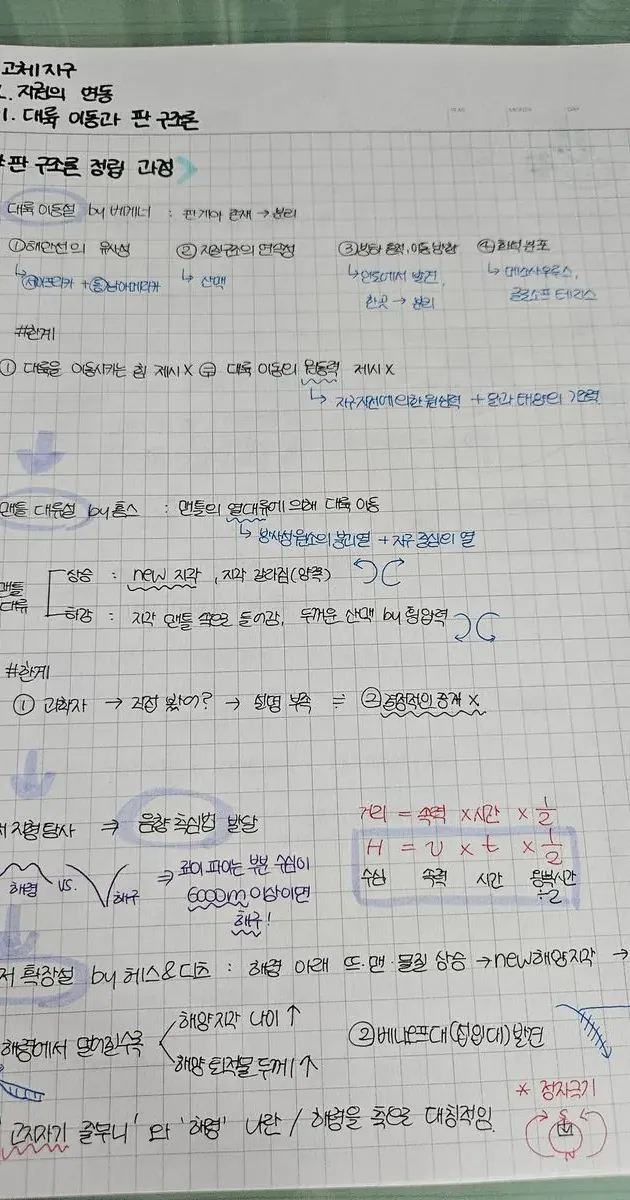 고체지구
1. 지권의 변동
1. 대륙 이동과 판 구조론
YEAR MONTH DAY
#판 구조론 정립 과정
대륙이동설 by 베게너 : 판게아 존재 → 분리
①해안선의 유사성 ② 지질구조의 연속성 ③빙하 흔적, 이동방향 ④ 화석 분포
↳ 서아프리카 + 동남아메리카 ↳ 산맥 ↳인도에서 발견, ↳ 메소사우루스,
한곳 → 분리 글로소프테리스
#한계
① 대륙을 이동시키는 힘 제시 X = 대륙 이동의 원동력 제시 X
↳ 지구자전에 의한 원심력 + 달과 태양의 기조력
맨틀 대류설 by 홈스 : 맨틀의 열대류에 의해 대륙 이동
↳ 방사성원소의 붕괴열 + 지구 중심의 열
맨틀 대류
상승 : new 지각, 지각 갈라짐(장력)
하강 : 지각 맨틀 속으로 들어감, 두꺼운 산맥 by 횡압력
#한계
① 과학자 → 직접 봤어? → 설명 부족 ② 결정적인 증거 X
저 지형탐사 ⇒ 음향 측심법 발달
거리 = 속력 × 시간 × 1/2
H = v × t × 1/2
수심 속력 시간 왕복시간 ÷2
해령 vs. 해구 ⇒ 깊이 파이는 부분 수심이
6000m 이상이면
해구!
저 확장설 by 헤스&디츠 : 해령 아래 뜨·맨·물질 상승 → new해양지각 →
해령에서 멀어질수록 해양지각 나이 ↑
해양 퇴적물 두께 ↑
②베니오프대(섭입대) 발견
* 정자극기
S
N
'고지자기 줄무늬' 와 '해령' 나란 / 해령을 축으로 대칭적임.